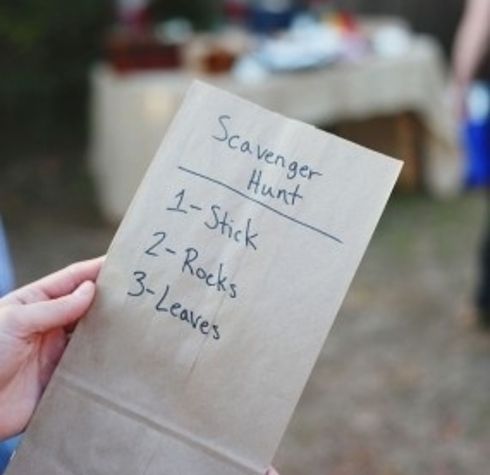 Scavenger
Hunt
1- Stick
2- Rocks
3-Leaves